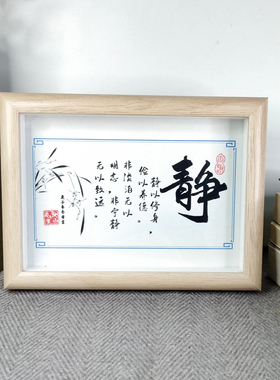 静
静以修身，
俭以养德。
非淡泊无以
明志，非宁静
无以致远。